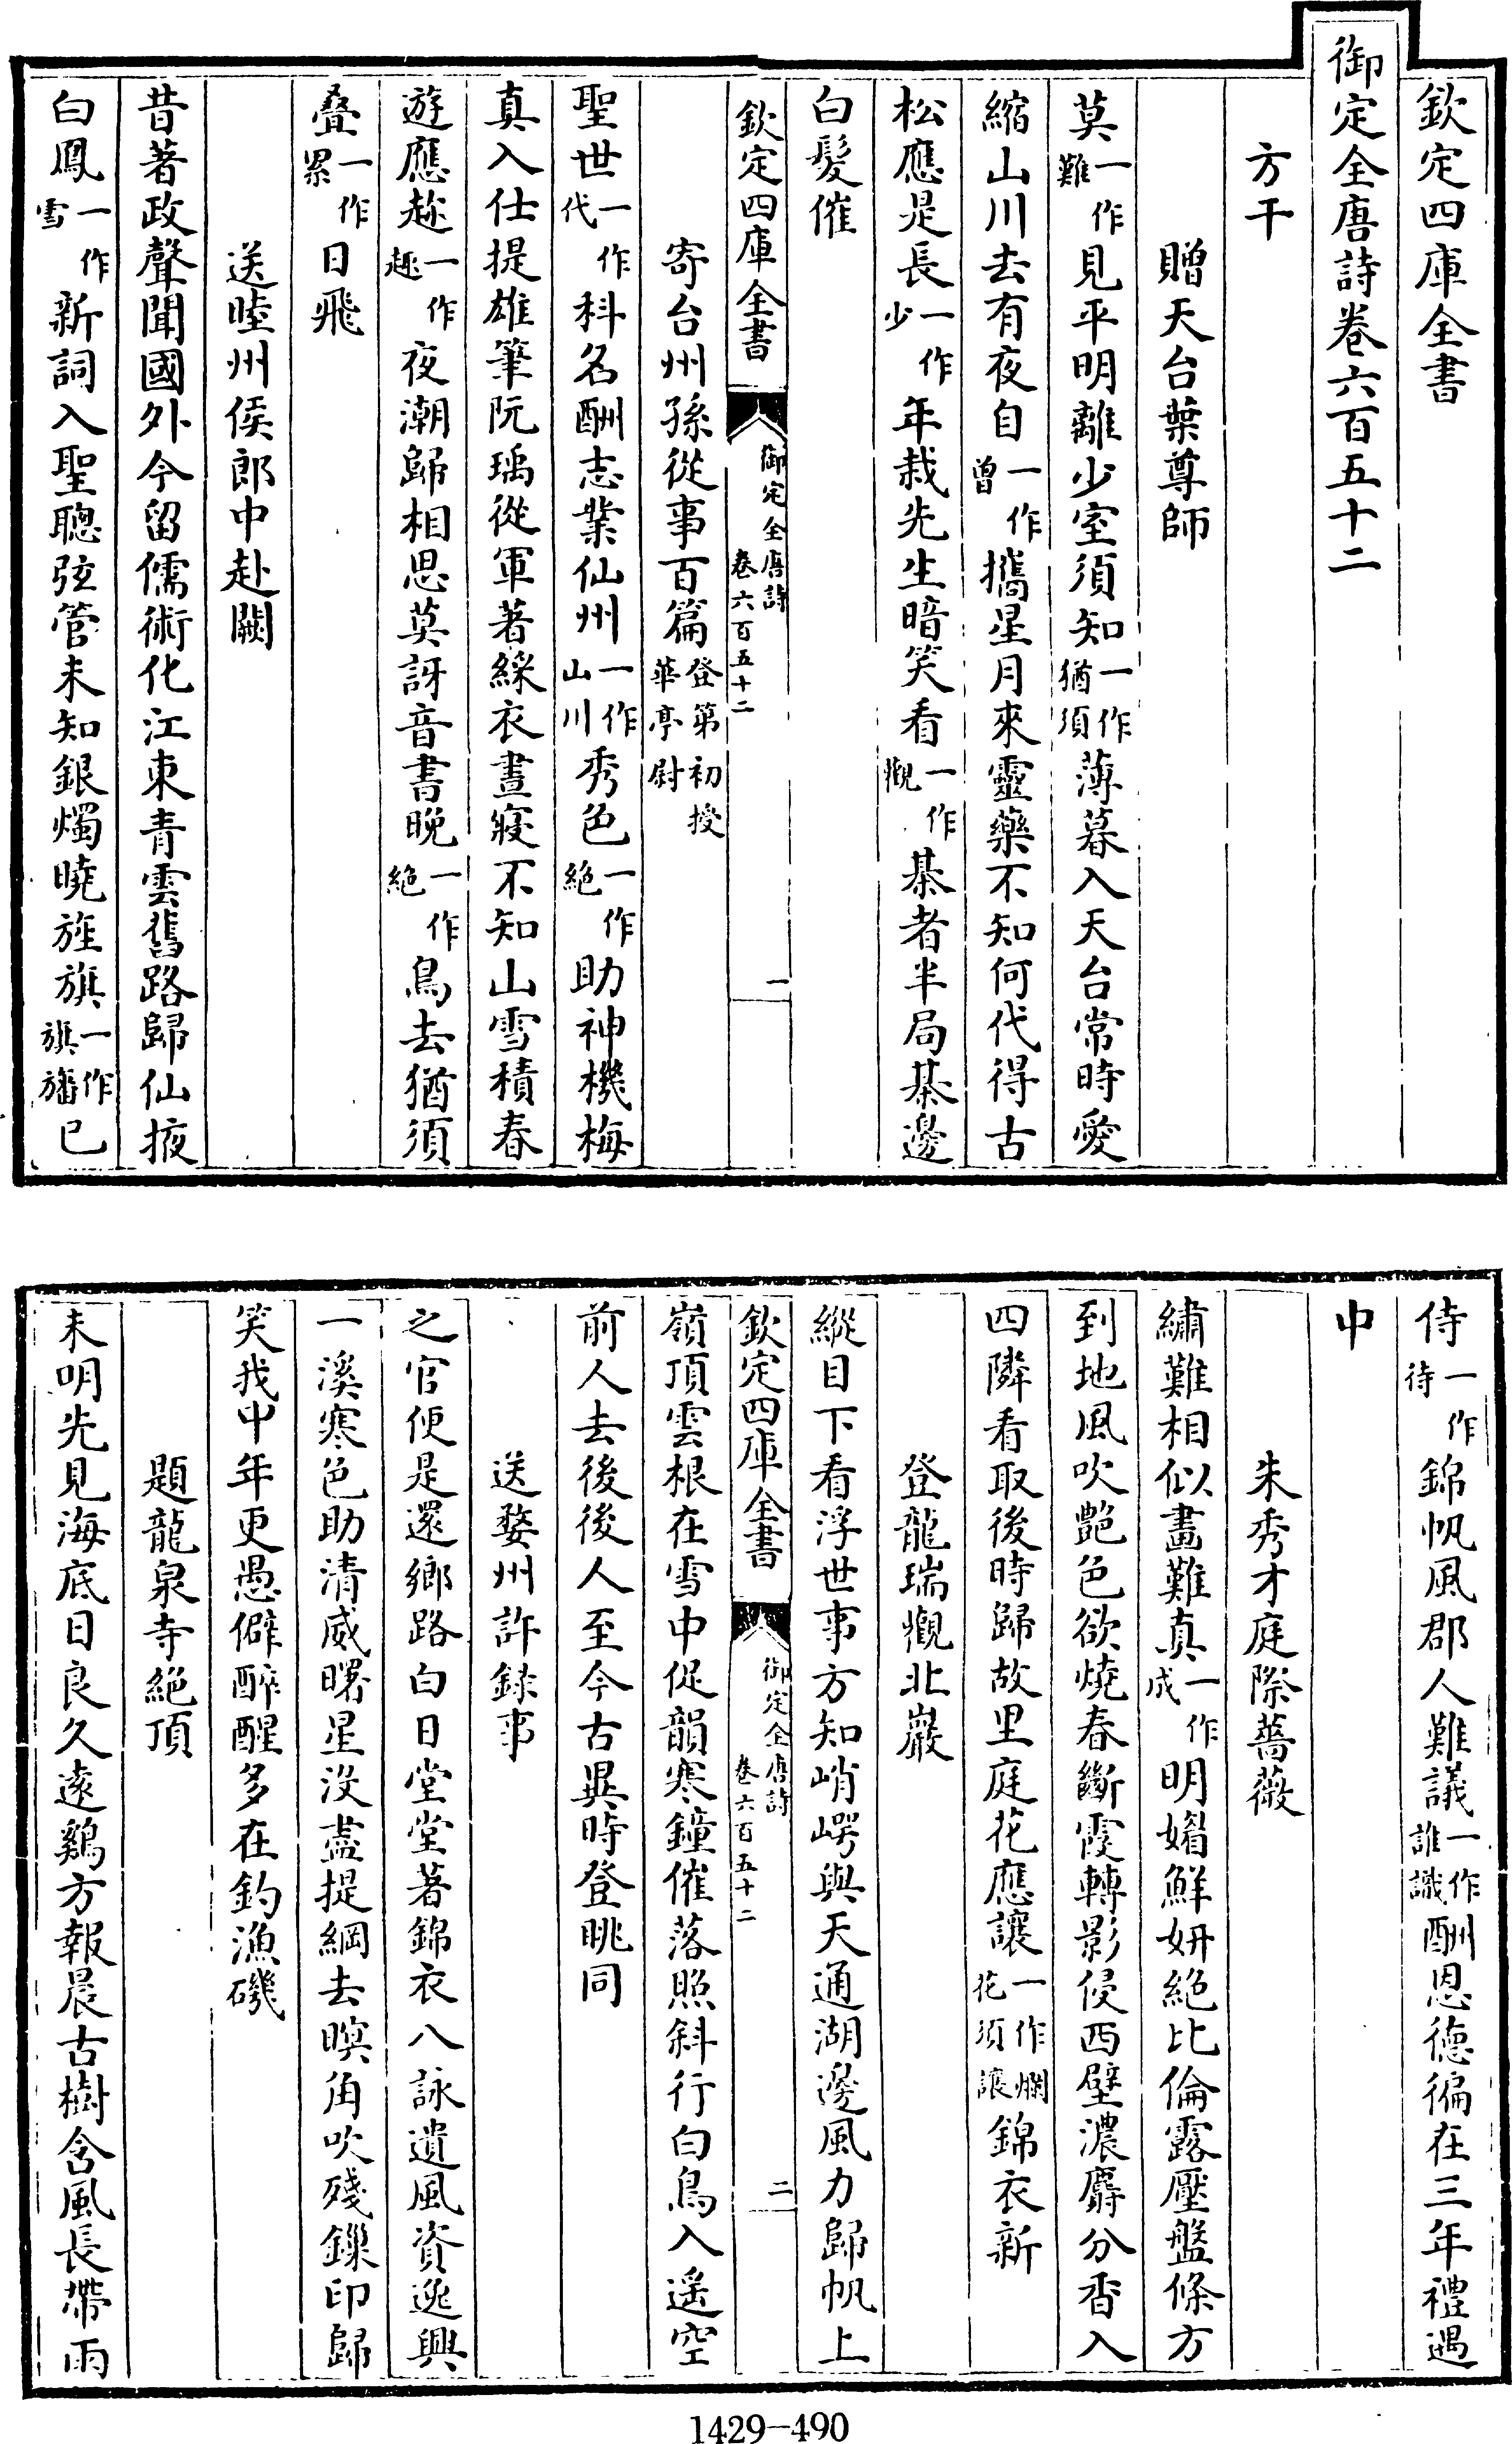 欽定四庫全書
御定全唐詩卷六百五十二
方干
贈天台葉尊師
莫一作難見平明離少室須知一作猶須薄暮入天台常時愛
縮山川去有夜自一作曽攜星月來靈藥不知何代得古
松應是長一作少年栽先生暗笑看一作觀棊者半局棊邊
白髮催
欽定四庫全書 御定全唐詩 卷六百五十二 一
寄台州孫從事百篇登第初授華亭尉
聖世一作代科名酬志業仙州一作山川秀色一作絶助神機梅
真入仕提雄筆阮瑀從軍著綵衣晝寢不知山雪積春
遊應趂一作趣夜潮歸相思莫訝音書晚一作絶鳥去猶須
疊一作累日飛
送睦州侯郎中赴闕
昔著政聲聞國外今留儒術化江東青雲舊路歸仙掖
白鳳一作雪新詞入聖聰弦管未知銀燭曉旌旗一作旗旛已
侍一作待錦帆風郡人難議一作誰識酬恩德徧在三年禮遇
中
朱秀才庭際薔薇
繡難相似畫難真一作成明媚鮮妍絶比倫露壓盤條方
到地風吹艶色欲燒春斷霞轉影侵西壁濃麝分香入
四隣看取後時歸故里庭花應讓一作爛花須讓錦衣新
登龍瑞觀北巖
縱目下看浮世事方知峭崿與天通湖邊風力歸帆上
欽定四庫全書 御定全唐詩 卷六百五十二 二
嶺頂雲根在雪中促韻寒鐘催落照斜行白鳥入遥空
前人去後後人至今古異時登眺同
送婺州許録事
之官便是還鄉路白日堂堂著錦衣八詠遺風資逸興
一溪寒色助清威曙星没盡提綱去暝角吹殘鏁印歸
笑我中年更愚僻醉醒多在釣漁磯
題龍泉寺絶頂
未明先見海底日良久遠鷄方報晨古樹含風長帶雨
1429-490